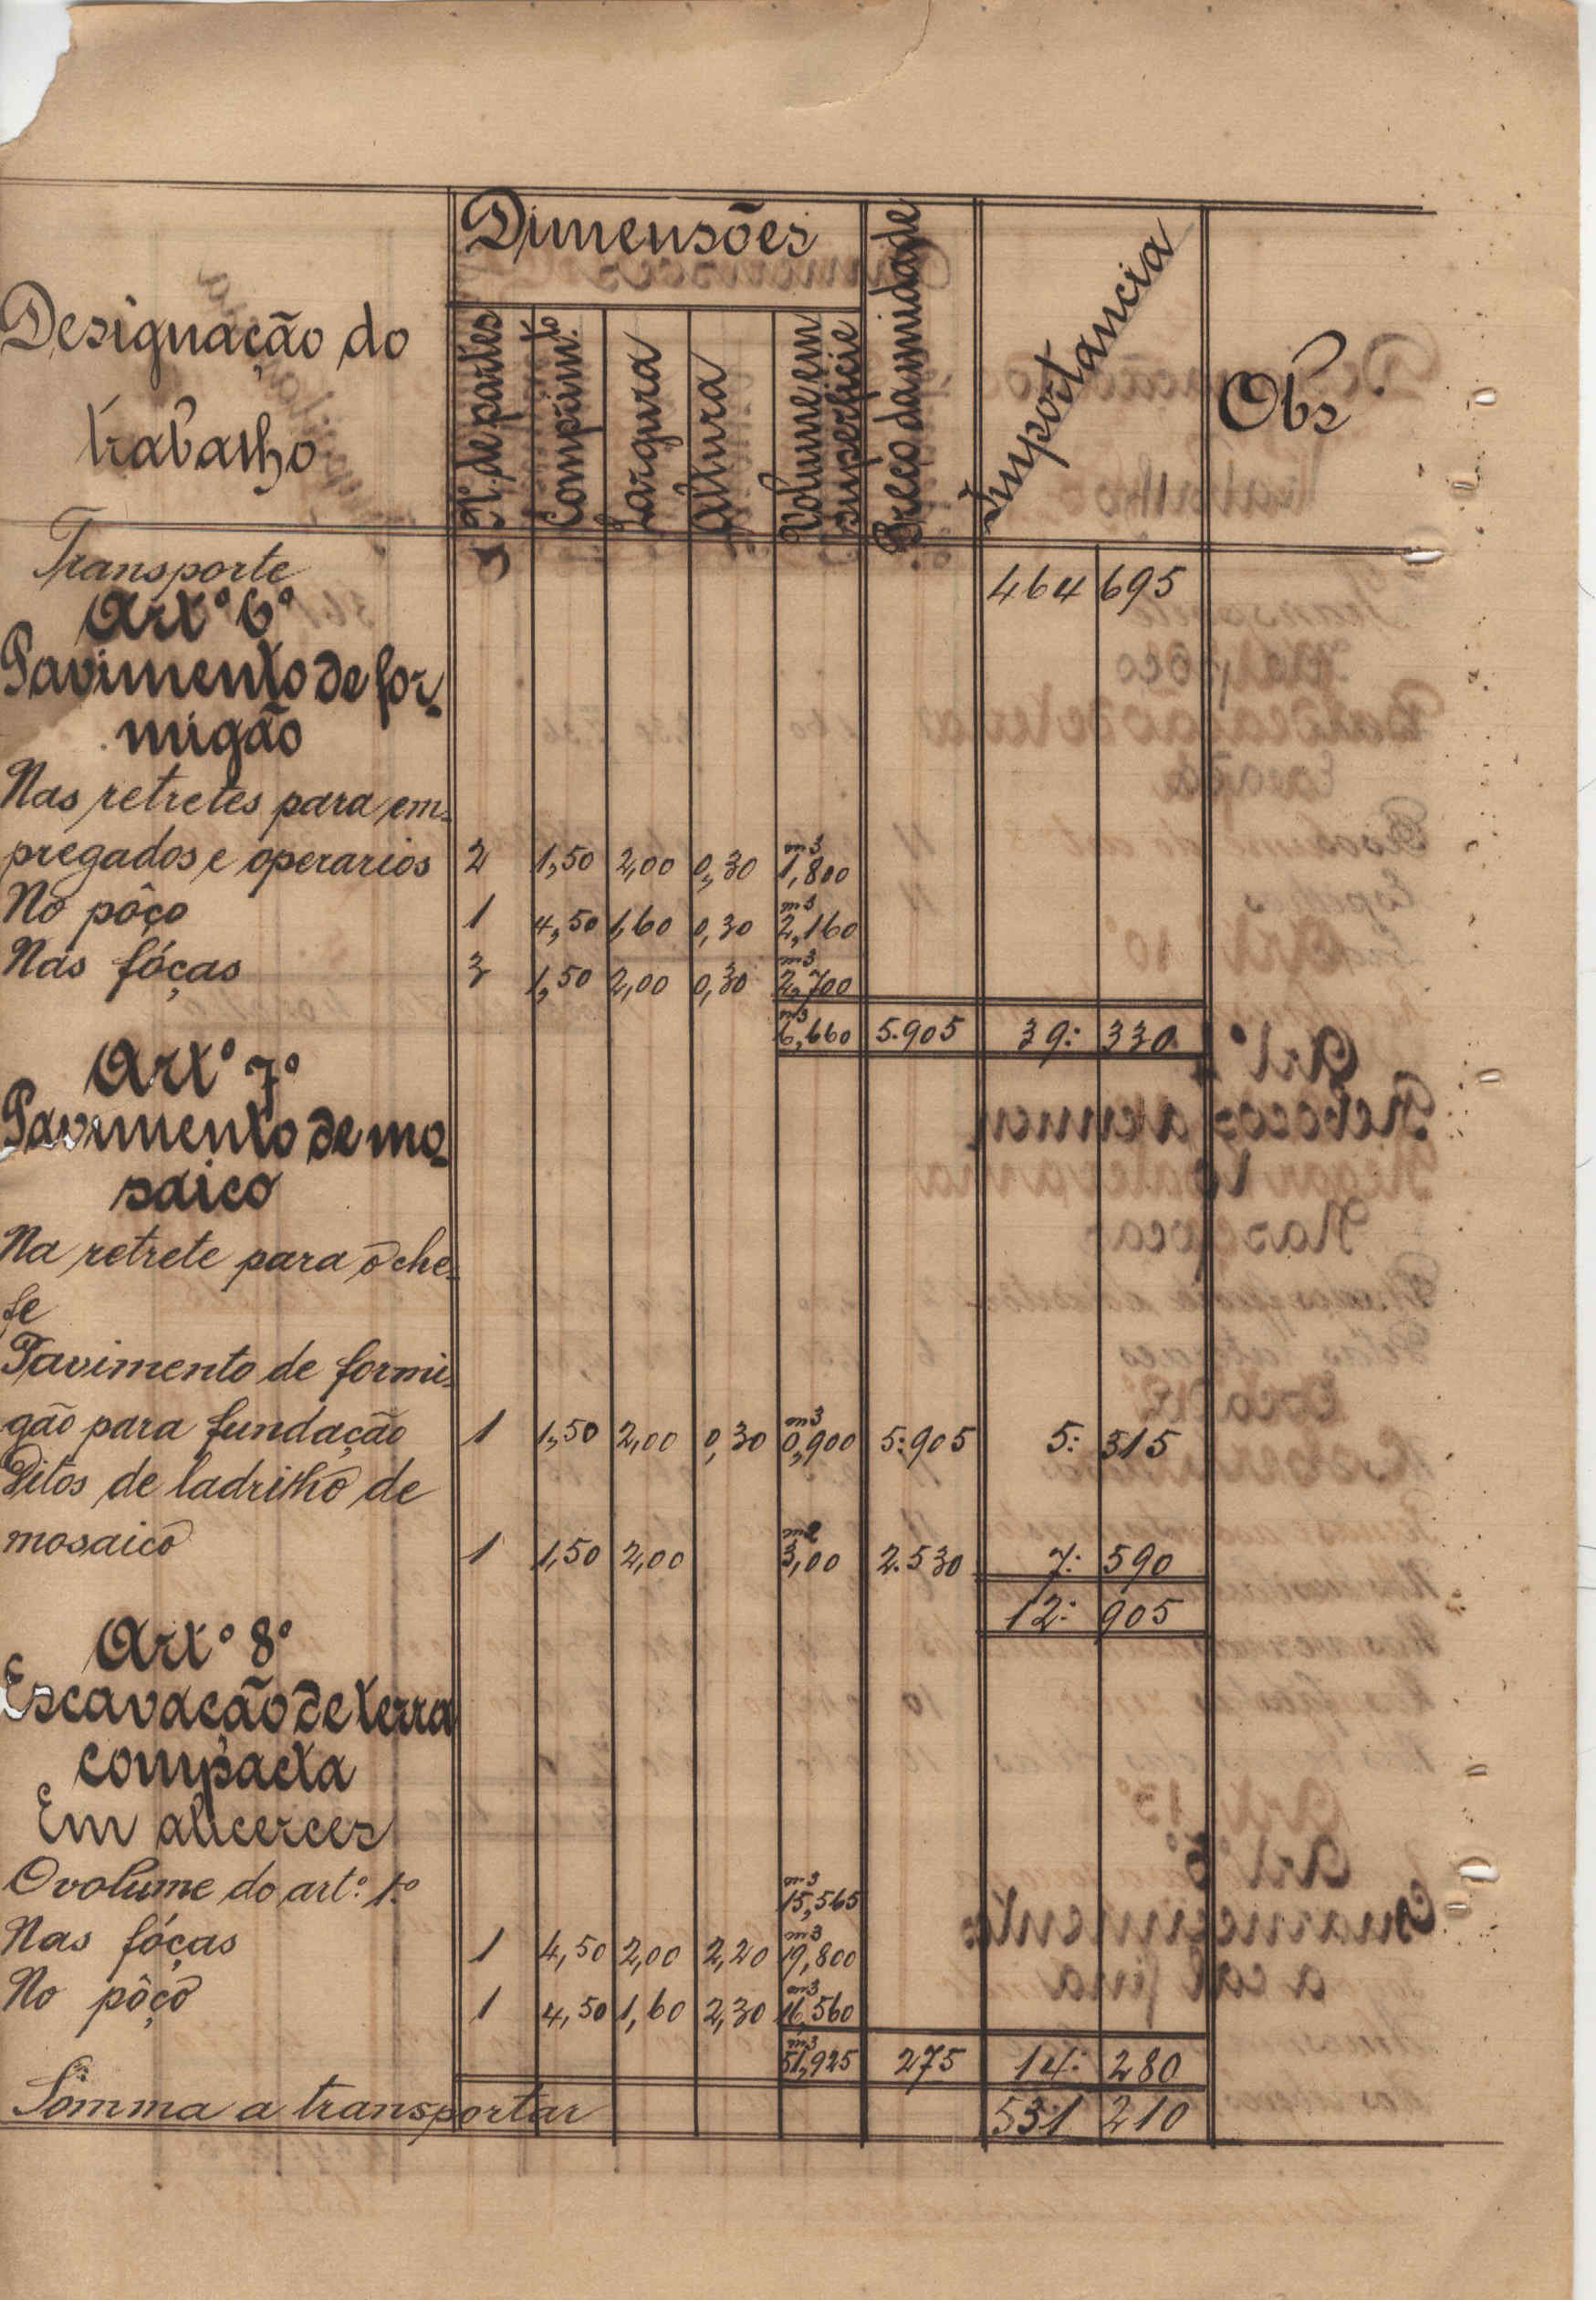 Designação do
trabalho
Dimensões
N.º de partes
Comprim.to
Largura
Altura
Volume em
superficie
Preço da unidade
Importancia
Obs
Transporte 464 695
Art.º 6.º
Pavimento de for-
migão
Nas retretes para em-
pregados e operarios 2 1,50 2,00 0,30 m3 1,800
No pôço 1 4,50 1,60 0,30 m3 2,160
Nas fóças 3 1,50 2,00 0,30 m3 2,700
m3 6,660 5.905 39: 330
Art.º 7.º
Pavimento de mo-
saico
Na retrete para o che-
fe
Pavimento de formi-
gão para fundação 1 1,50 2,00 0,30 m3 0,900 5:905 5: 315
Ditos de ladrilho de
mosaico 1 1,50 2,00 m2 3,00 2.530 7: 590
12: 905
Art.º 8.º
Escavação de terra
compacta
Em alicerces
O volume do art.º 1.º m3 15,565
Nas fóças 1 4,50 2,00 2,20 m3 19,800
No pôço 1 4,50 1,60 2,30 m3 16,560
m3 51,925 275 14: 280
Somma a transportar 531 210